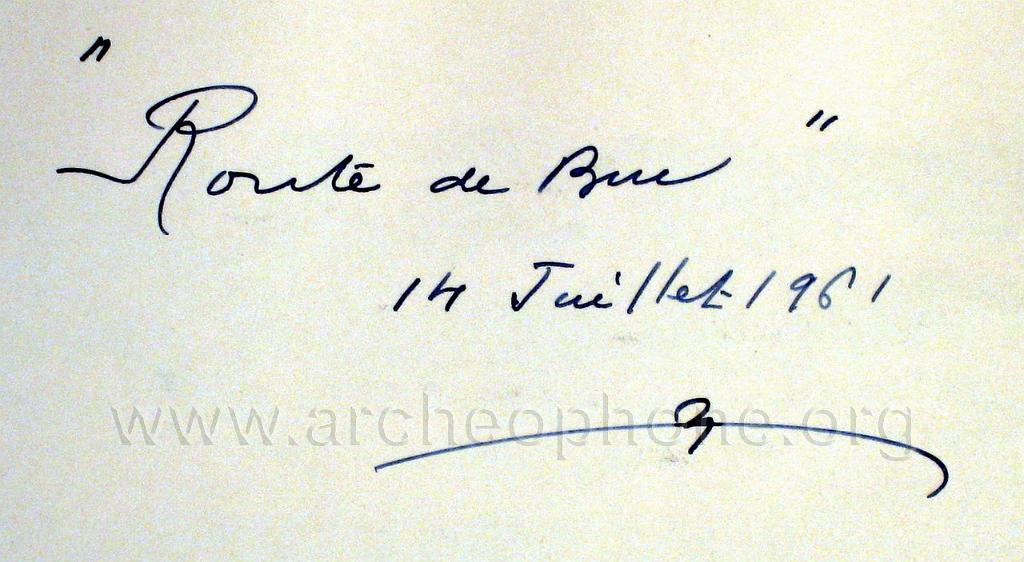 " Route de Buc "
14 Juillet 1961
www.archeophone.org